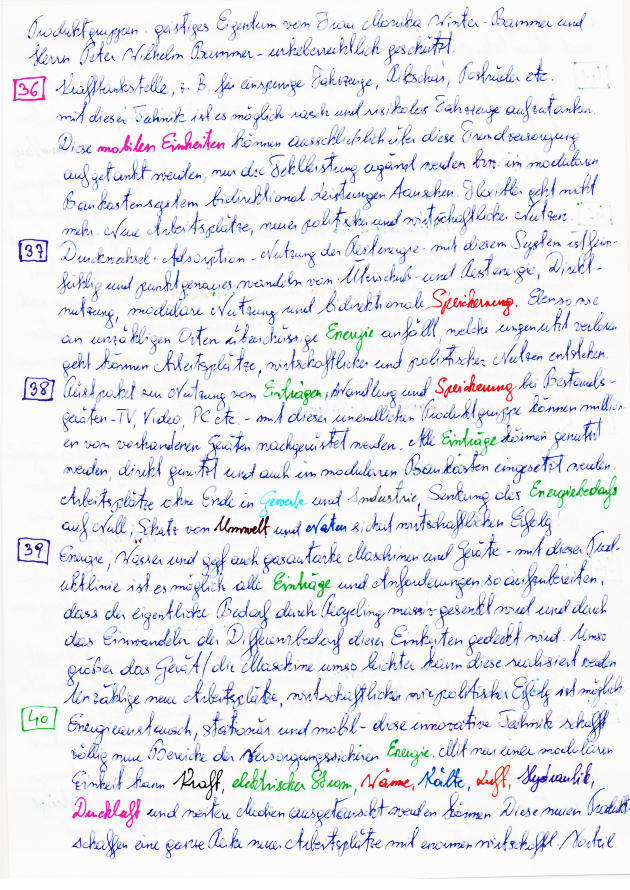 Produktgruppen. geistiges Eigentum von Frau Monika Winter-Bammer und
Herrn Peter Wilhelm Bammer - urheberrechtlich geschützt.
36 Krafttankstelle, z. B. für einspurige Fahrzeuge, Rikschas, Posträder etc.
mit dieser Technik ist es möglich rasch und risikolos Fahrzeuge aufzutanken.
Diese mobilen Einheiten können ausschließlich über diese Fremdversorgung
aufgetankt werden, nur die Fehlleistung ergänzt werden bzw. im modularen
Baukastensystem bidirektional Leistungen tauschen. Flexibler geht nicht
mehr. Neue Arbeitsplätze, neuer politischer und wirtschaftlicher Nutzen.
37 Druckwechsel-Adsorption-Nutzung der Restenergie - mit diesem System ist fein-
fühlig und punktgenaues wandeln von Überschuß- und Restenergie, Direkt-
nutzung, modulare Nutzung und bidirektionale Speicherung. Ebenso wie
an unzähligen Orten überschüssige Energie anfällt, welche ungenutzt verloren
geht können Arbeitsplätze, wirtschaftlicher und politischer Nutzen entstehen.
38 Rüstpaket zur Nutzung von Einträgen, Wandlung und Speicherung bei Bestands-
geräten - TV, Video, PC etc. - mit dieser unendlichen Produktgruppe können million-
en von vorhandenen Geräten nachgerüstet werden. Alle Einträge können genutzt
werden, direkt genutzt und auch im modularen Baukasten eingesetzt werden.
Arbeitsplätze ohne Ende in Gewerbe und Industrie, Senkung des Energiebedarfs
auf Null, Schutz von Umwelt und Natur sichert wirtschaftlichen Erfolg
39 Energie, Wasser und ggf. auch gasautarke Maschinen und Geräte - mit dieser Prod-
uktlinie ist es möglich alle Einträge und Anforderungen so aufzubereiten,
dass der eigentliche Bedarf durch Recycling massiv gesenkt wird und durch
das Einwandeln der Differenzbedarf dieser Einheiten gedeckt wird. Umso
größer das Gerät/die Maschine umso leichter kann diese realisiert werden
Unzählige neue Arbeitsplätze, wirtschaftlicher wie politischer Erfolg ist möglich
40 Energieaustausch, stationär und mobil - diese innovative Technik schafft
völlig neue Bereiche der versorgungssicheren Energie. Mit nur einer modularen
Einheit kann Kraft, elektrischer Strom, Wärme, Kälte, Luft, Hydraulik,
Druckluft und weitere Medien ausgetauscht werden können. Diese neuen Produkte
schaffen eine ganze Reihe neuer Arbeitsplätze mit enormen wirtschaftl. Vorteil